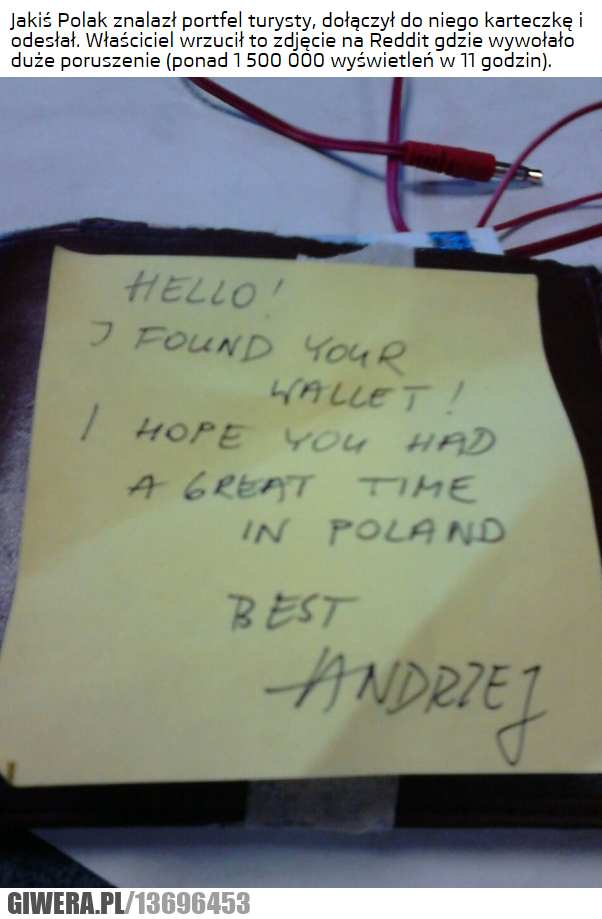 Jakiś Polak znalazł portfel turysty, dołączył do niego karteczkę i
odesłał. Właściciel wrzucił to zdjęcie na Reddit gdzie wywołało
duże poruszenie (ponad 1 500 000 wyświetleń w 11 godzin).
HELLO!
I FOUND YOUR
WALLET!
I HOPE YOU HAD
A GREAT TIME
IN POLAND
BEST
ANDRZEJ
GIWERA.PL/13696453